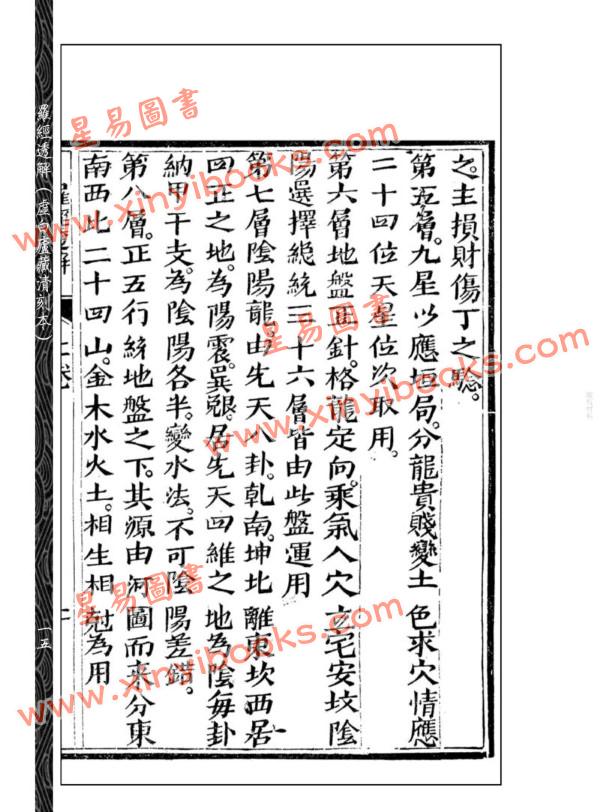 之主損財傷丁之驗。
第五層。九星以應垣局。分龍貴賤變土色求穴情應
二十四位天星位次取用。
第六層地盤正針。格龍定向。乘氣入穴立宅安坟陰
陽選擇總統三十六層皆由此盤運用
第七層陰陽龍。由先天八卦。乾南。坤北離東坎西居
四正之地。為陽震。巽兌。居先天四維之地為陰每卦
納甲干支。為陰陽各半。變水法。不可陰陽差錯。
第八層。正五行終地盤之下。其源由河圖而来分東
南西北二十四山。金木水火土。相生相尅為用
羅經透解
上卷
羅經透解（虛白廬藏清刻本）
一五
星易圖書
www.xinyibooks.com
星易圖書
www.xinyibooks.com
星易圖書
www.xinyibooks.com